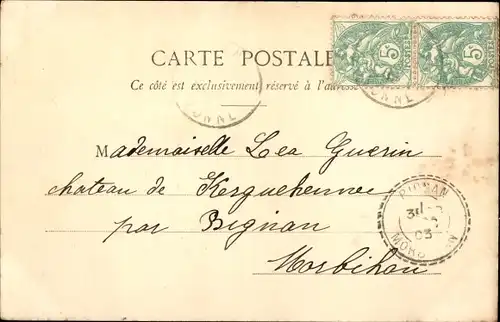 CARTE POSTALE
Ce côté est exclusivement réservé à l'adresse
5 5
ONNE
ONNE
Mademoiselle Lea Guerin
chateau de Kerguehennec
par Bignan
Morbihan
BIGNAN
03
MORB